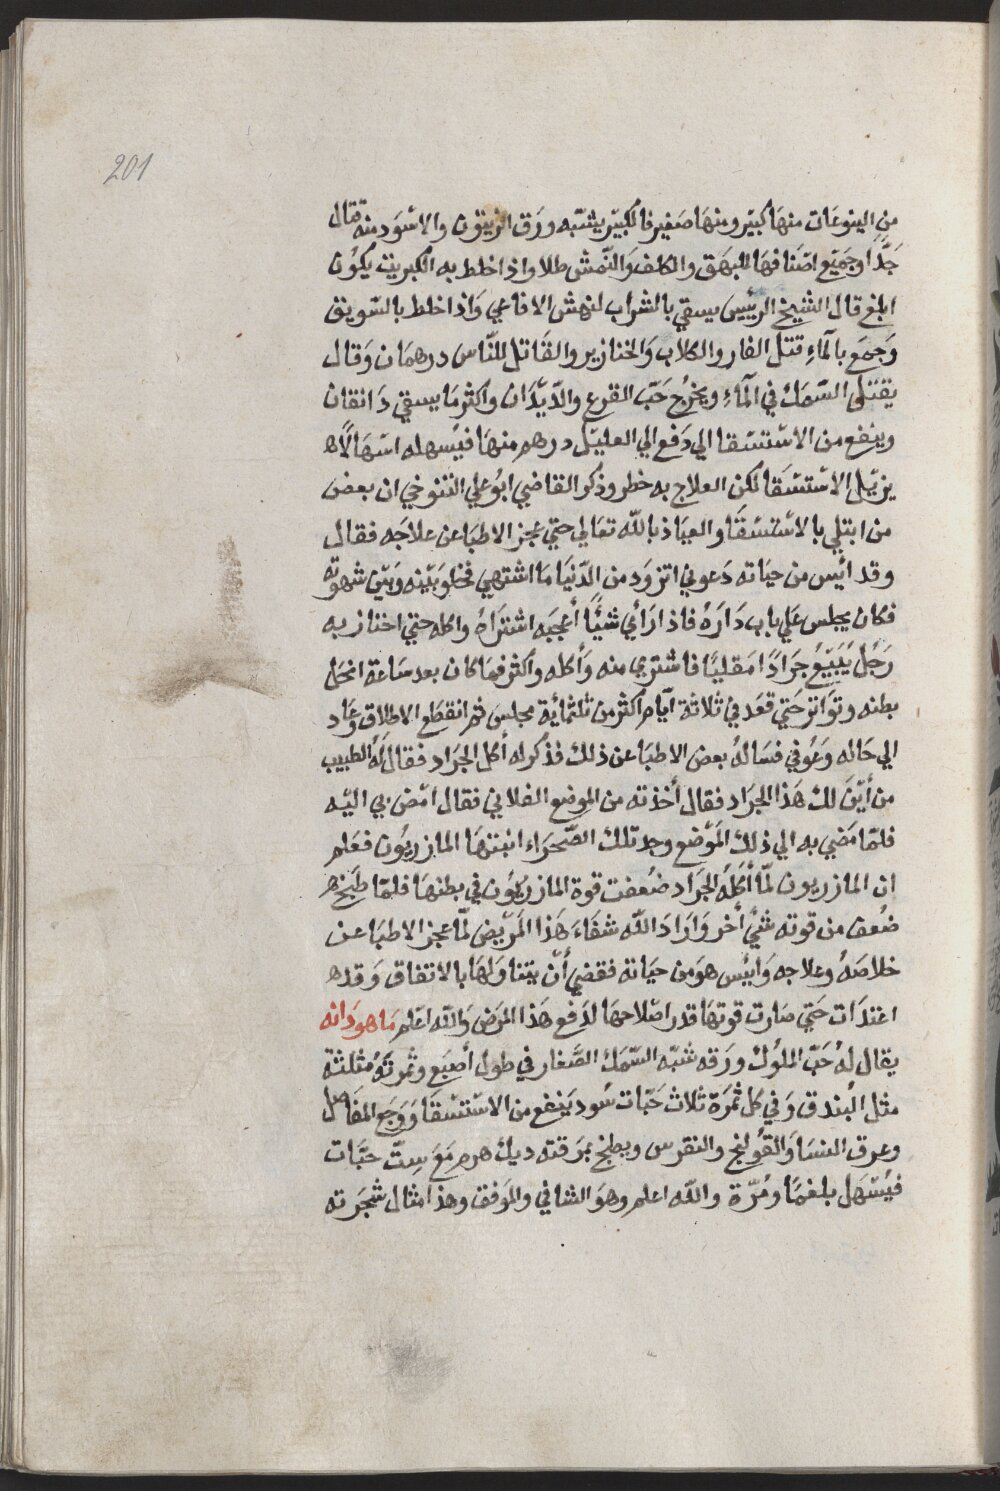 201
من الينوعات منها كبير ومنها صغير فالكبير يشبه ورق الزيتون والاسود منه قتال
جدًا وجميع اصنافها للبهق والكلف والنمش طلا واذا خلط به الكبريت يكون
ابلغ قال الشيخ الرئيس يسقي بالشراب لنهش الافاعي واذا خلط بالسويق
وجمع بالماء قتل الفار والكلاب والخنازير والقاتل للناس درهمان وقال
يقتل السمك في الماء ويخرج حب القرع والديدان واكثر ما يسقي دانقان
وينفع من الاستسقا الي دفع الي العليل درهم منها فيسهله اسهالًا
يزيل الاستسقا لكن العلاج به خطر وذكر القاضي ابو علي التنوخي ان بعض
من ابتلي بالاستسقا والعياذ بالله تعالي حتي عجز الاطبا عن علاجه فقال
وقد ائيس من حياته دعوني اتزود من الدنيا ما اشتهي فخلو بينه وبين شهوته
فكان يجلس علي باب داره فاذا رأي شيئًا أعجبه اشتراه واكله حتي اجتاز به
رجل يبيع جرادًا مقليًا فاشتري منه وأكله واكثر فما كان بعد ساعة انحل
بطنه وتواتر حتي قعد في ثلاثة ايام اكثر من ثلثمأية مجلس ثم انقطع الاطلاق وعاد
الي حاله وعوفي فساله بعض الاطبا عن ذلك فذكر له أكل الجراد فقال له الطبيب
من أين لك هذا الجراد فقال أخذته من الموضع الفلاني فقال امض بي اليه
فلما مضي به الي ذلك الموضع وجد تلك الصحراء انبتها المازريون فعلم
ان المازريون لما أكله الجراد ضعفت قوة المازريون في بطنها فلما طبخ
ضعف من قوته شئ أخر واراد الله شفاء هذا المريض لما عجز الاطبا عن
خلاصه وعلاجه وايس هو من حياته فقضي أن يتناولها بالاتفاق وقد
اغتدات حتي صارت قوتها قدر اصلاحها لدفع هذا المرض والله اعلم ماهودانه
يقال له حب الملوك ورقه شبه السمك الصغار في طول أصبع وثمرته مثلثة
مثل البندق وفي كل ثمرة ثلاث حبات سود ينفع من الاستسقا ووجع المفاصل
وعرق النسا والقولنج والنقرس ويطبخ بمرقته ديك هرم مع ست حبات
فيسهل بلغمًا ومرة والله اعلم وهو الشافي والموفق وهذا مثال شجرته